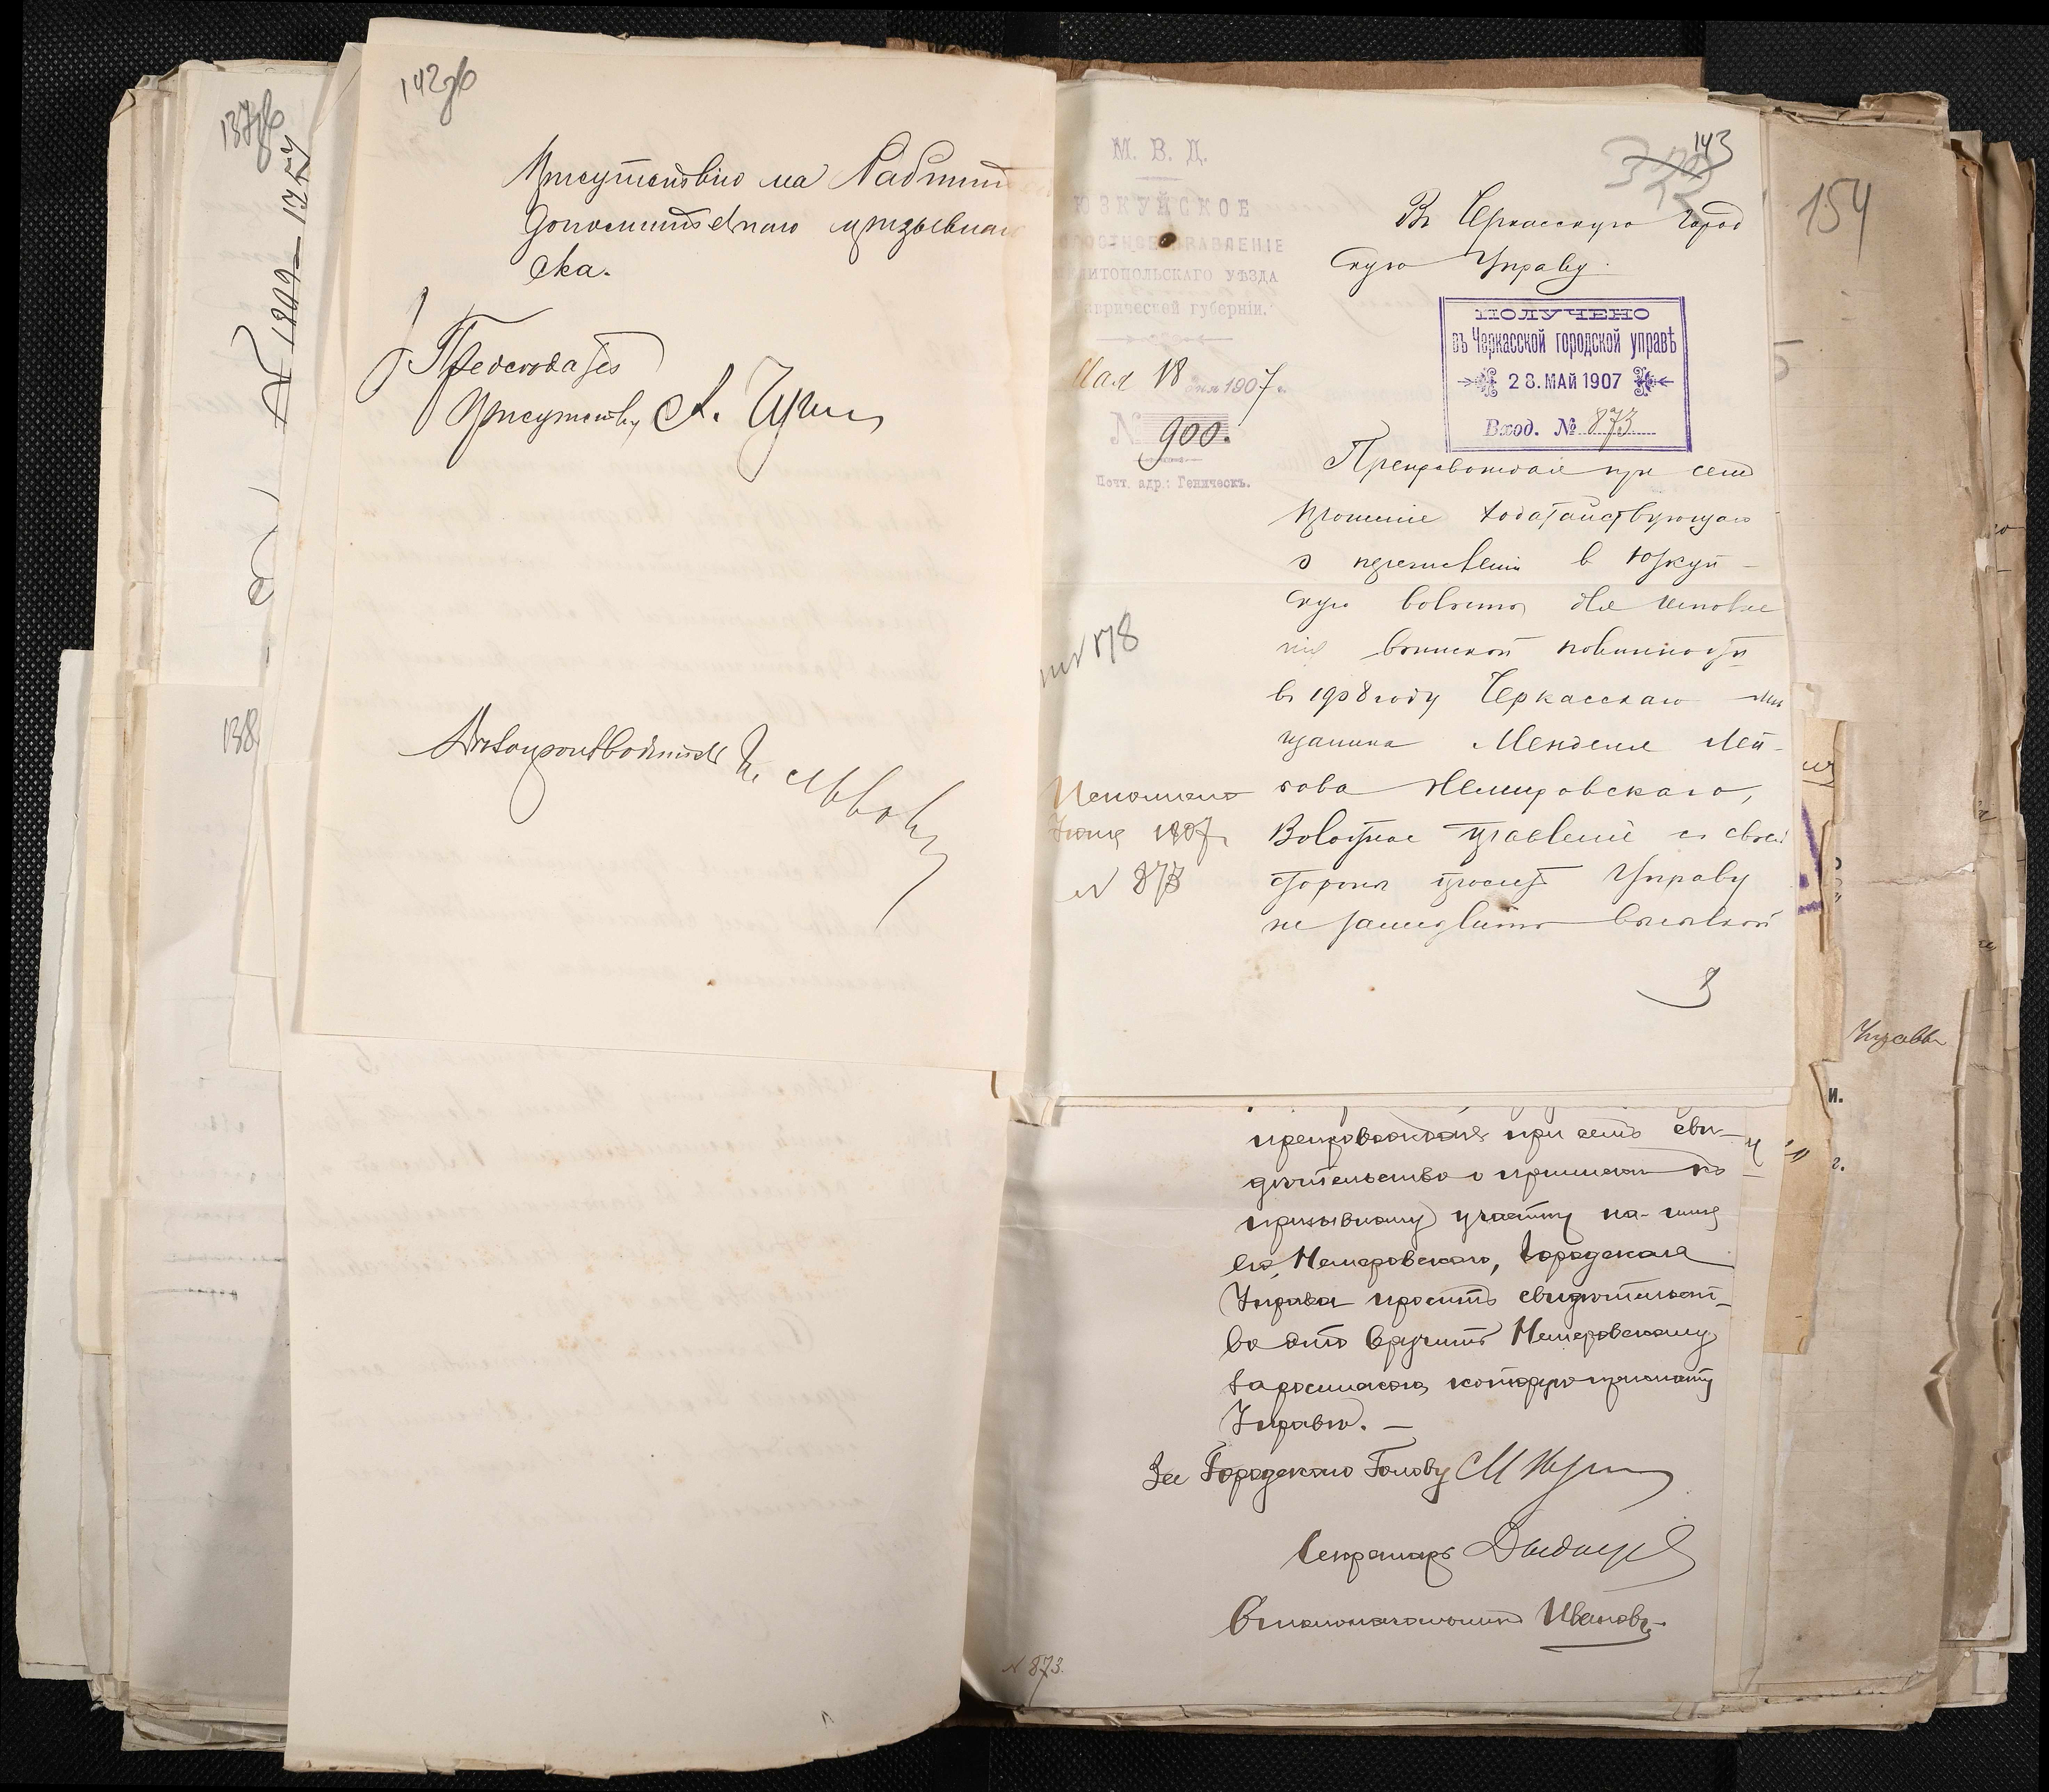 137об
№ 1309–1257
138
142об
Присутствію на
дополнительнаго призывнаго
ска.
Председатель
Присутствія А.
Делопроизводитель
143
М. В. Д.
ЮЗКУЙСКОЕ
ВОЛОСТНОЕ ПРАВЛЕНІЕ
МЕЛИТОПОЛЬСКАГО УѢЗДА
Таврической губерніи.
Мая 18 дня 1907 г.
№ 900.
Почт. адр.: Геническъ.
Въ Черкасскую Город
скую Управу.
ПОЛУЧЕНО
въ Черкасской городской управѣ
28. МАЙ 1907
Вход. № 873
Препровождая при семъ
прошеніе ходатайствующаго
о перечисленіи в Юзкуй-
скую волость для исполне
нія воинской повинности
въ 1908 году Черкасскаго мѣ
щанина Менделя Лей-
зова Немировскаго,
Волостное правленіе съ своей
стороны просит Управу
не замедлить высылкой
№ 878
Исполнено
Іюня 1907 г.
№ 873
препровождая при семъ сви-
дѣтельство о припискѣ къ
призывному участку на имя
его, Немеровскаго, Городская
Управа проситъ свидѣтельст-
во это вручить Немеровскому
росписку, которую прислать
Управѣ. —
За Городского Голову М
Секретарь
Столоначальникъ Ивановъ
№ 873.
154
Управы
и.
г.